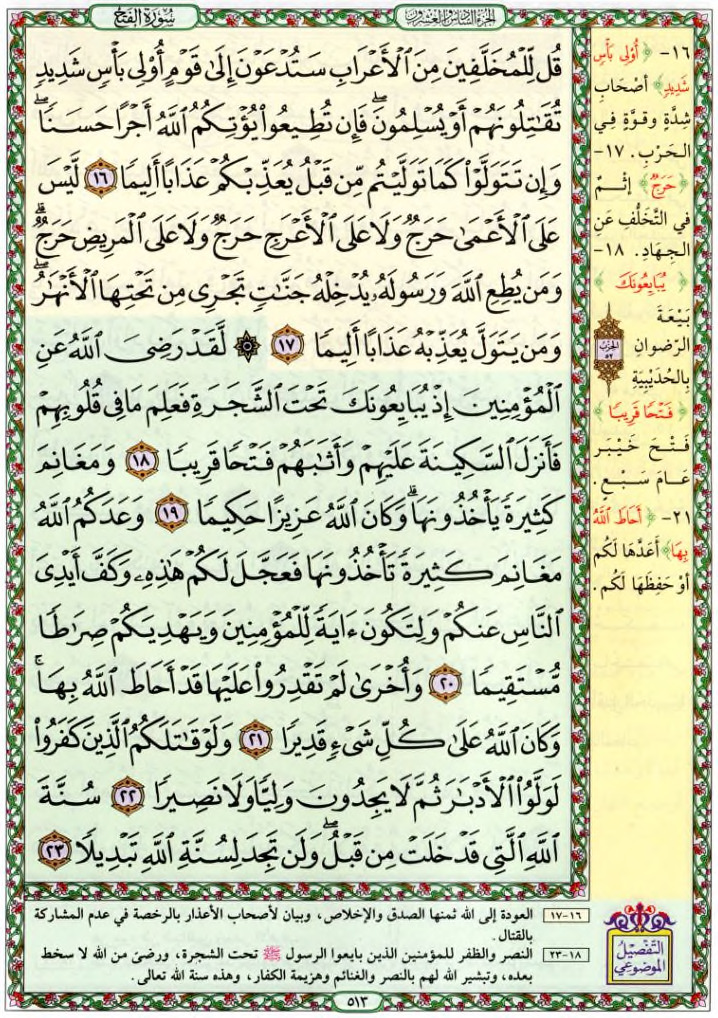 سُورَةُ الفَتْحِ
الجُزْءُ السَّادِسُ وَالعِشْرُونَ
قُل لِّلْمُخَلَّفِينَ مِنَ ٱلْأَعْرَابِ سَتُدْعَوْنَ إِلَىٰ قَوْمٍ أُو۟لِى بَأْسٍ شَدِيدٍ
تُقَٰتِلُونَهُمْ أَوْ يُسْلِمُونَ ۖ فَإِن تُطِيعُوا۟ يُؤْتِكُمُ ٱللَّهُ أَجْرًا حَسَنًا ۖ
وَإِن تَتَوَلَّوْا۟ كَمَا تَوَلَّيْتُم مِّن قَبْلُ يُعَذِّبْكُمْ عَذَابًا أَلِيمًا ١٦ لَّيْسَ
عَلَى ٱلْأَعْمَىٰ حَرَجٌ وَلَا عَلَى ٱلْأَعْرَجِ حَرَجٌ وَلَا عَلَى ٱلْمَرِيضِ حَرَجٌ ۗ
وَمَن يُطِعِ ٱللَّهَ وَرَسُولَهُۥ يُدْخِلْهُ جَنَّٰتٍ تَجْرِى مِن تَحْتِهَا ٱلْأَنْهَٰرُ ۖ
وَمَن يَتَوَلَّ يُعَذِّبْهُ عَذَابًا أَلِيمًا ١٧ ۞ لَّقَدْ رَضِىَ ٱللَّهُ عَنِ
ٱلْمُؤْمِنِينَ إِذْ يُبَايِعُونَكَ تَحْتَ ٱلشَّجَرَةِ فَعَلِمَ مَا فِى قُلُوبِهِمْ
فَأَنزَلَ ٱلسَّكِينَةَ عَلَيْهِمْ وَأَثَٰبَهُمْ فَتْحًا قَرِيبًا ١٨ وَمَغَانِمَ
كَثِيرَةً يَأْخُذُونَهَا ۗ وَكَانَ ٱللَّهُ عَزِيزًا حَكِيمًا ١٩ وَعَدَكُمُ ٱللَّهُ
مَغَانِمَ كَثِيرَةً تَأْخُذُونَهَا فَعَجَّلَ لَكُمْ هَٰذِهِۦ وَكَفَّ أَيْدِىَ
ٱلنَّاسِ عَنكُمْ وَلِتَكُونَ ءَايَةً لِّلْمُؤْمِنِينَ وَيَهْدِيَكُمْ صِرَٰطًا
مُّسْتَقِيمًا ٢٠ وَأُخْرَىٰ لَمْ تَقْدِرُوا۟ عَلَيْهَا قَدْ أَحَاطَ ٱللَّهُ بِهَا ۚ
وَكَانَ ٱللَّهُ عَلَىٰ كُلِّ شَىْءٍ قَدِيرًا ٢١ وَلَوْ قَٰتَلَكُمُ ٱلَّذِينَ كَفَرُوا۟
لَوَلَّوُا۟ ٱلْأَدْبَٰرَ ثُمَّ لَا يَجِدُونَ وَلِيًّا وَلَا نَصِيرًا ٢٢ سُنَّةَ
ٱللَّهِ ٱلَّتِى قَدْ خَلَتْ مِن قَبْلُ ۖ وَلَن تَجِدَ لِسُنَّةِ ٱللَّهِ تَبْدِيلًا ٢٣
١٦- ﴿أُوْلِي بَأْسٍ
شَدِيدٍ﴾ أصْحَابِ
شِدَّةٍ وقوَّةٍ فِي
الحَرْبِ. ١٧-
﴿حَرَجٌ﴾ إِثْمٌ
في التَّخَلُّفِ عَنِ
الجِهَادِ. ١٨-
﴿يُبَايِعُونَكَ﴾
بَيْعَةَ
الرّضوانِ
بِالحُدَيْبِيَةِ
﴿فَتْحًا قَرِيبًا﴾
فَتْحَ خَيْبَر
عَامَ سَبْعٍ.
٢١- ﴿أَحَاطَ اللَّهُ
بِهَا﴾ أَعَدَّهَا لَكُم
أوْ حَفِظَهَا لَكُم.
الحزب
٥٢
١٦-١٧ العودة إلى الله ثمنها الصدق والإخلاص، وبيان لأصحاب الأعذار بالرخصة في عدم المشاركة
بالقتال.
١٨-٢٣ النصر والظفر للمؤمنين الذين بايعوا الرسول ﷺ تحت الشجرة، ورضىً من الله لا سخط
بعده، وتبشير الله لهم بالنصر والغنائم وهزيمة الكفار، وهذه سنة الله تعالى.
التَّفْصِيلُ
المَوْضُوعِي
٥١٣